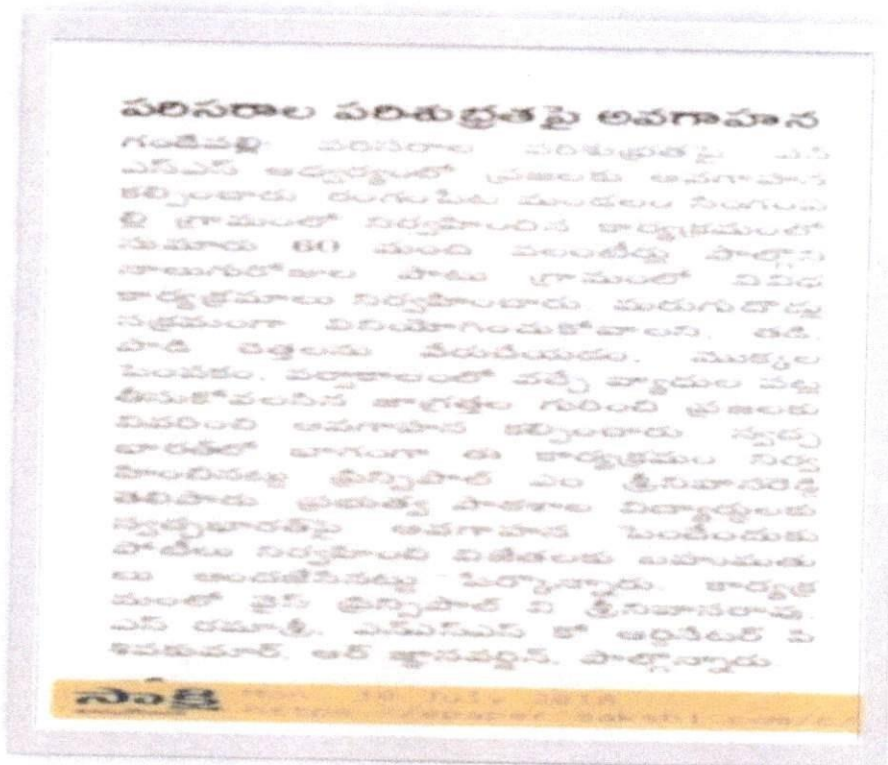 పరిసరాల పరిశుభ్రతపై అవగాహన
గండిపల్లి: పరిసరాల పరిశుభ్రతపై ఎన్
ఎస్ఎస్ ఆధ్వర్యంలో ప్రజలకు అవగాహన
కల్పించారు
గ్రామంలో నిర్వహించిన కార్యక్రమంలో
సుమారు 60 మంది వలంటీర్లు పాల్గొని
నాలుగురోజుల పాటు గ్రామంలో వివిధ
కార్యక్రమాలు నిర్వహించారు మురుగునీరు
సక్రమంగా వినియోగించుకోవాలని, తడి,
పొడి చెత్తలను వేరుచేయడం, మొక్కల
పెంపకం, వర్షాకాలంలో వచ్చే వ్యాధుల పట్ల
తీసుకోవలసిన జాగ్రత్తల గురించి ప్రజలకు
వివరించి అవగాహన కల్పించారు స్వచ్ఛ
భారత్‌లో భాగంగా ఈ కార్యక్రమం నిర్వ
హించినట్టు ప్రిన్సిపాల్ ఎం శ్రీనివాసరెడ్డి
తెలిపారు ప్రభుత్వ పాఠశాల విద్యార్థులకు
స్వచ్ఛభారత్‌పై అవగాహన పెంచేందుకు
పోటీలు నిర్వహించి విజేతలకు బహుమతు
లు అందజేసినట్టు పేర్కొన్నారు. కార్యక్ర
మంలో వైస్ ప్రిన్సిపాల్ వి శ్రీనివాసరావు,
ఎస్ రమాశ్రీ, ఎన్ఎస్ఎస్ కో ఆర్డినేటర్ పి
శివకుమార్, ఆర్ పాల్గొన్నారు
సాక్షి